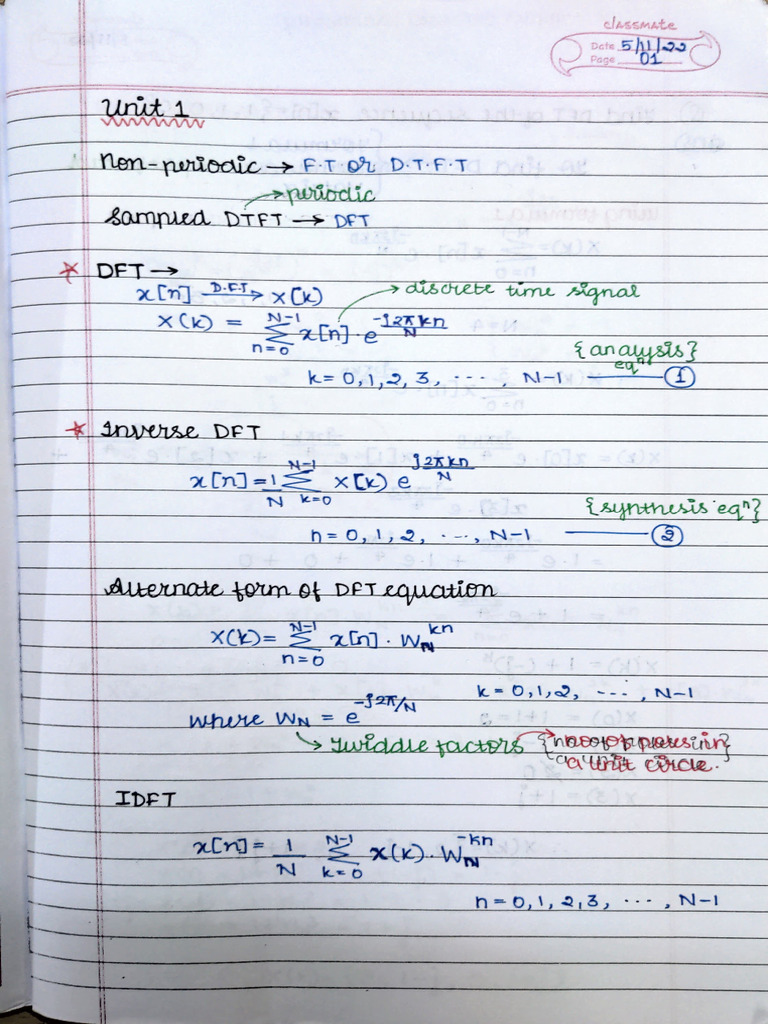 classmate
Date 5/11/22
Page 01
Unit 1
Non-periodic → F.T or D.T.F.T
→ periodic
Sampled DTFT → DFT
* DFT →
x[n] D.F.T→ X(k)
→ discrete time signal
X(k) = N-1 ∑ n=0 x[n] · e^(-j2πkn/N)
{analysis} eqⁿ
k = 0, 1, 2, 3, ···· N-1 ——— ①
* Inverse DFT
x[n] = 1/N N-1 ∑ k=0 X(k) e^(j2πkn/N)
{synthesis eqⁿ}
n = 0, 1, 2, ···, N-1 ——— ②
Alternate form of DFT equation
X(k) = N-1 ∑ n=0 x[n] · W_N^kn
k = 0, 1, 2, ···, N-1
where W_N = e^(-j2π/N)
↳ Twiddle factors → in
a unit circle.
IDFT
x[n] = 1/N N-1 ∑ k=0 x(k) · W_N^-kn
n = 0, 1, 2, 3, ···, N-1